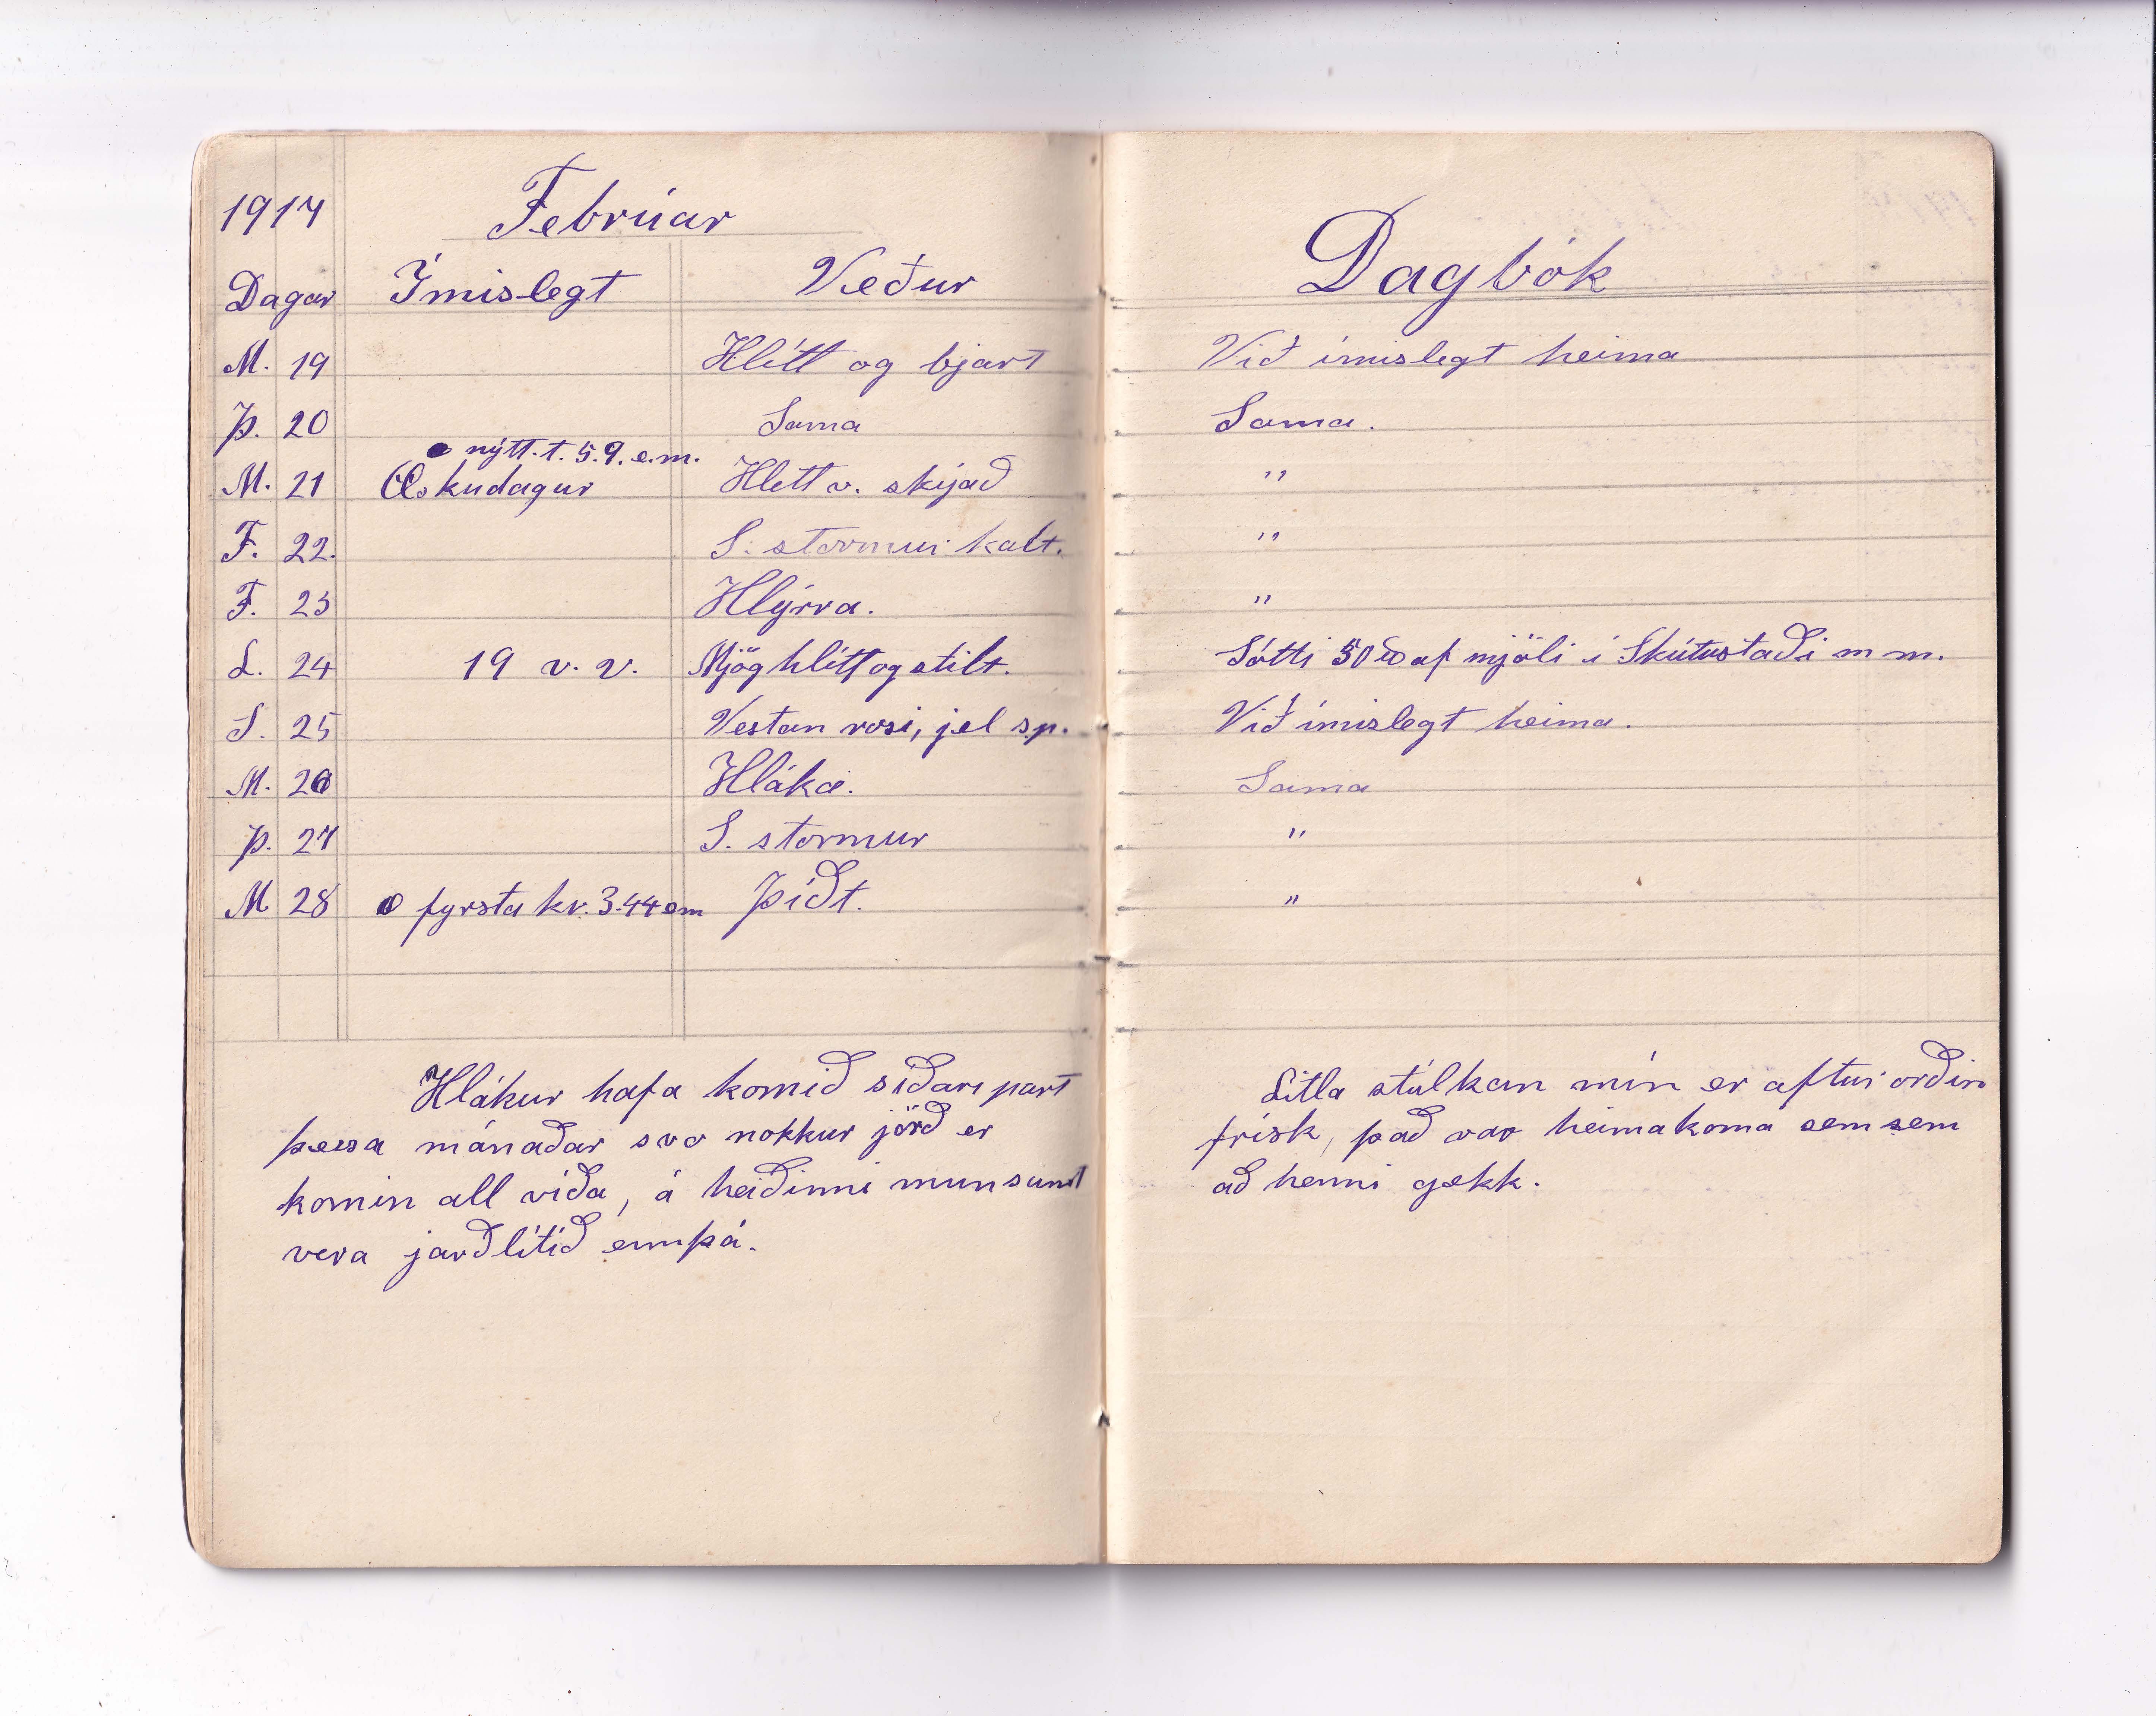 1917 Febrúar
Dagar Ímislegt Veður
M. 19 Hlítt og bjart
Þ. 20 Sama
nýtt. t. 5.9. e.m.
M. 21 Öskudagur Hlett v. skijað
F. 22. S. stormur kalt.
F. 23 Hlýrra.
L. 24 19 v. v. Mjög hlítt og stilt.
S. 25 Vestan rosi, jel sp.
M. 26 Hláka.
Þ. 27 S. stormur
M 28 fyrsta kv. 3.44 em Þíðt.
Hlákur hafa komið síðari part
þessa mánaðar svo nokkur jörð er
komin all víða, á heiðinni mun samt
vera jarðlítið ennþá.
Dagbók
Við ímislegt heima
Sama.
"
"
"
Sótti 50 af mjöli í Skútustaði m m.
Við ímislegt heima.
Sama
"
"
Litla stúlkan mín er aftur orðin
frísk, það var heimakoma sem sem
að henni gekk.